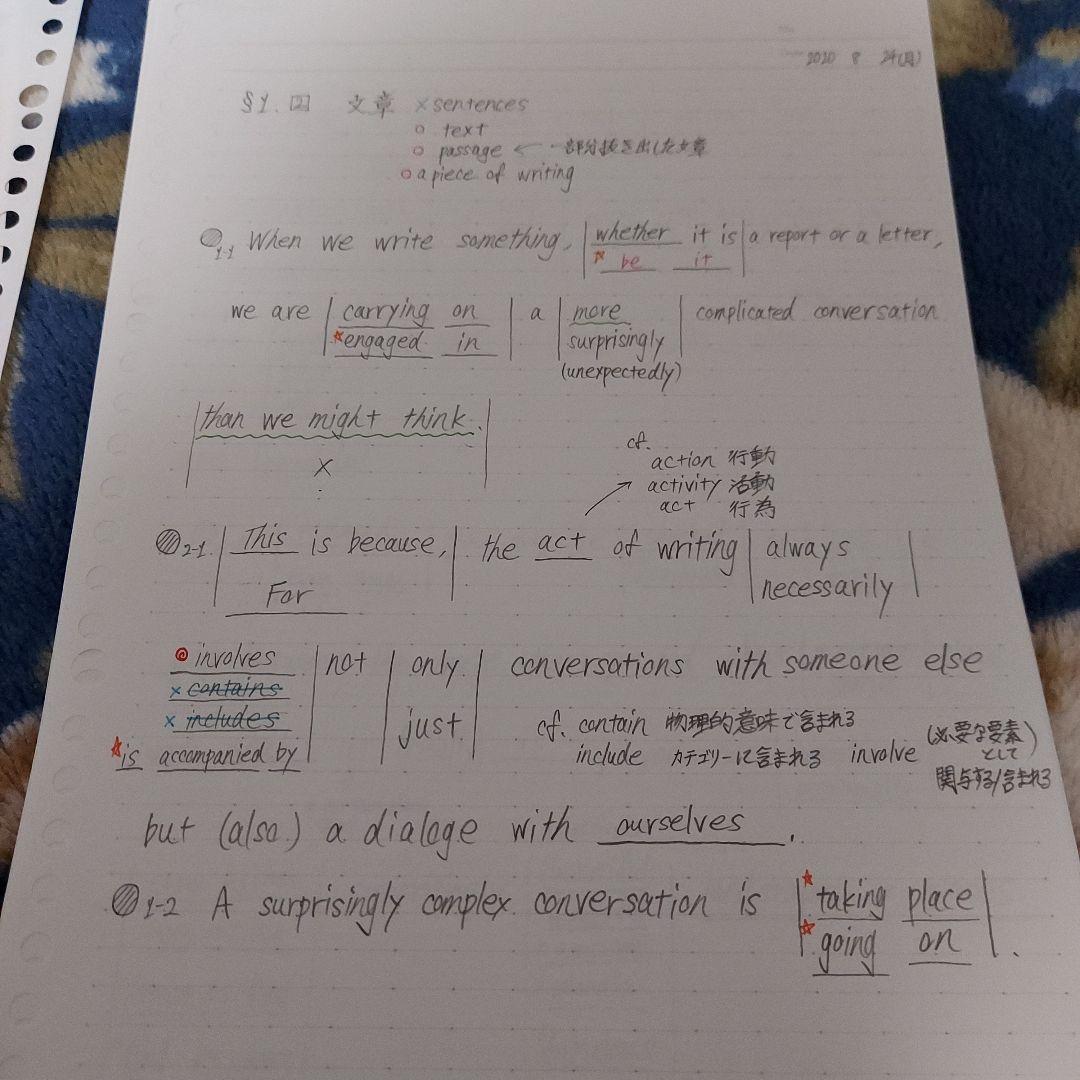 2020 8 24(月)
§1. 2 文章 ×sentences
○ text
○ passage ← 一部分抜き出した文章
○ a piece of writing
1-1 When we write something, whether it is a report or a letter,
☆ be it
we are carrying on a more complicated conversation
☆engaged in surprisingly
(unexpectedly)
than we might think.
×
cf.
action 行動
activity 活動
act 行為
2-1. This is because, the act of writing always
For necessarily
◎ involves not only conversations with someone else
× contains
× includes just cf. contain 物理的意味で含まれる
☆is accompanied by include カテゴリーに含まれる involve (必要な要素として)
関与する/含まれる
but (also) a dialoge with ourselves.
1-2 A surprisingly complex conversation is ☆taking place
☆going on.